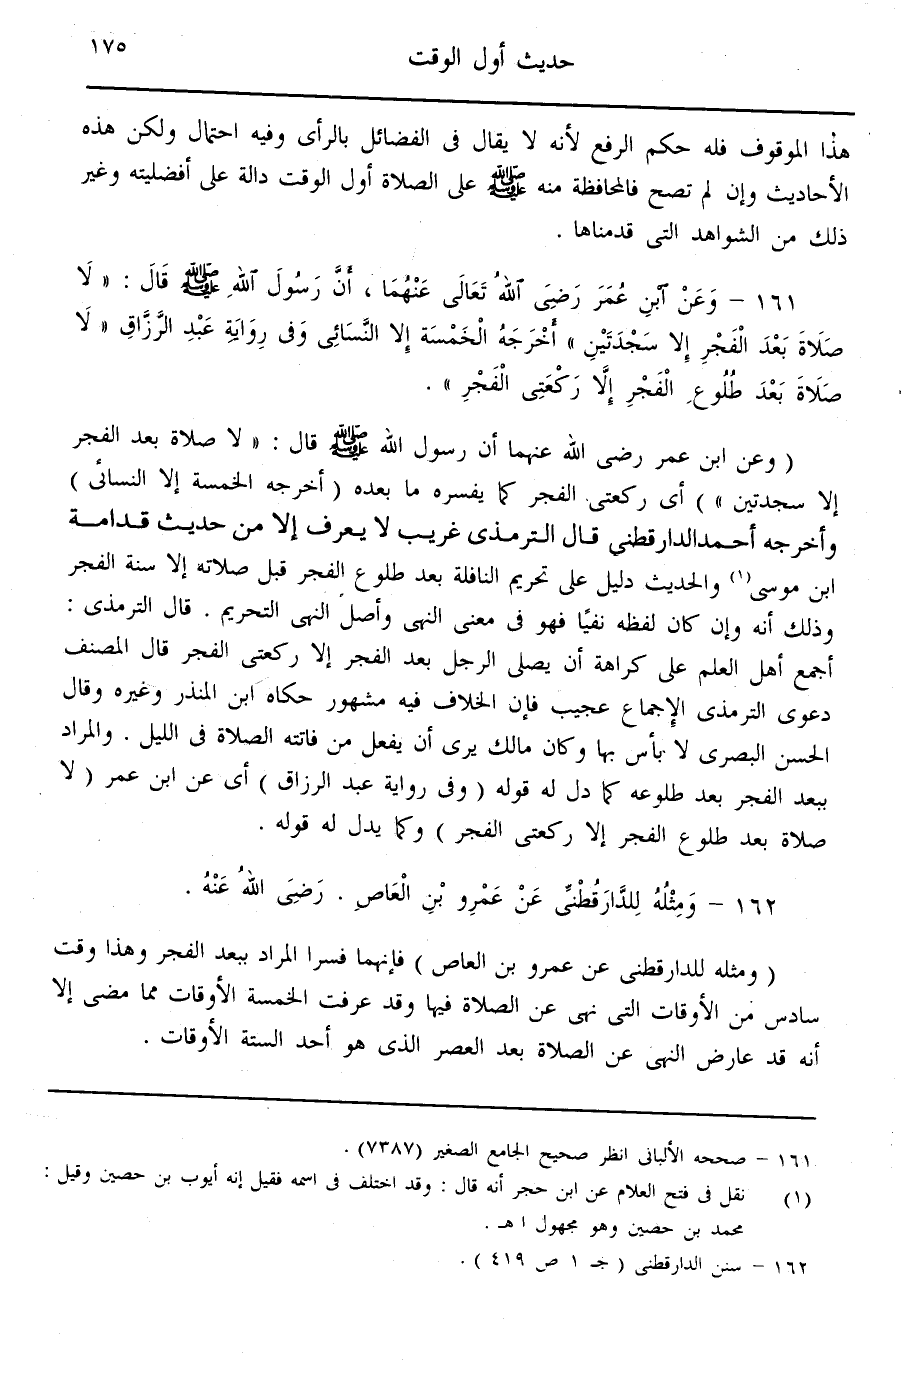 حديث أول الوقت ١٧٥
هذا الموقوف فله حكم الرفع لأنه لا يقال فى الفضائل بالرأى وفيه احتمال ولكن هذه
الأحاديث وإن لم تصح فالمحافظة منه ﷺ على الصلاة أول الوقت دالة على أفضليته وغير
ذلك من الشواهد التى قدمناها .
١٦١ – وَعَنْ ٱبْنِ عُمَرَ رَضِىَ ٱللهُ تَعَالَى عَنْهُمَا ، أَنَّ رَسُولَ ٱللهِ ﷺ قَالَ : « لَا
صَلَاةَ بَعْدَ الْفَجْرِ إِلا سَجْدَتَيْنِ » أَخْرَجَهُ الْخَمْسَة إِلا النَّسَائِى وَفى رِوَايَةِ عَبْدِ الرَّزَّاقِ « لَا
صَلَاةَ بَعْدَ طُلُوعِ الْفَجْرِ إِلَّا رَكْعَتِى الْفَجْرِ » .
( وعن ابن عمر رضى الله عنهما أن رسول الله ﷺ قال : « لا صلاة بعد الفجر
إلا سجدتين » ) أى ركعتى الفجر كما يفسره ما بعده ( أخرجه الخمسة إلا النسائى )
وأخرجه أحمدالدارقطني قال الترمذى غريب لا يعرف إلا من حديث قدامة
ابن موسى(١) والحديث دليل على تحريم النافلة بعد طلوع الفجر قبل صلاته إلا سنة الفجر
وذلك أنه وإن كان لفظه نفيًا فهو فى معنى النهى وأصل النهى التحريم . قال الترمذى :
أجمع أهل العلم على كراهة أن يصلى الرجل بعد الفجر إلا ركعتى الفجر قال المصنف
دعوى الترمذى الإجماع عجيب فإن الخلاف فيه مشهور حكاه ابن المنذر وغيره وقال
الحسن البصرى لا بأس بها وكان مالك يرى أن يفعل من فاتته الصلاة فى الليل . والمراد
ببعد الفجر بعد طلوعه كما دل له قوله ( وفى رواية عبد الرزاق ) أى عن ابن عمر ( لا
صلاة بعد طلوع الفجر إلا ركعتى الفجر ) وكما يدل له قوله .
١٦٢ – وَمِثْلُهُ لِلدَّارَقُطْنِّى عَنْ عَمْرِو بْنِ الْعَاصِ . رَضِىَ اللهُ عَنْهُ .
( ومثله للدارقطنى عن عمرو بن العاص ) فإنهما فسرا المراد ببعد الفجر وهذا وقت
سادس من الأوقات التى نهى عن الصلاة فيها وقد عرفت الخمسة الأوقات مما مضى إلا
أنه قد عارض النهى عن الصلاة بعد العصر الذى هو أحد الستة الأوقات .
١٦١ – صححه الألبانى انظر صحيح الجامع الصغير (٧٣٨٧) .
(١) نقل فى فتح العلام عن ابن حجر أنه قال : وقد اختلف فى اسمه فقيل إنه أيوب بن حصين وقيل :
محمد بن حصين وهو مجهول ا هـ .
١٦٢ – سنن الدارقطنى ( جـ ١ ص ٤١٩ ) .